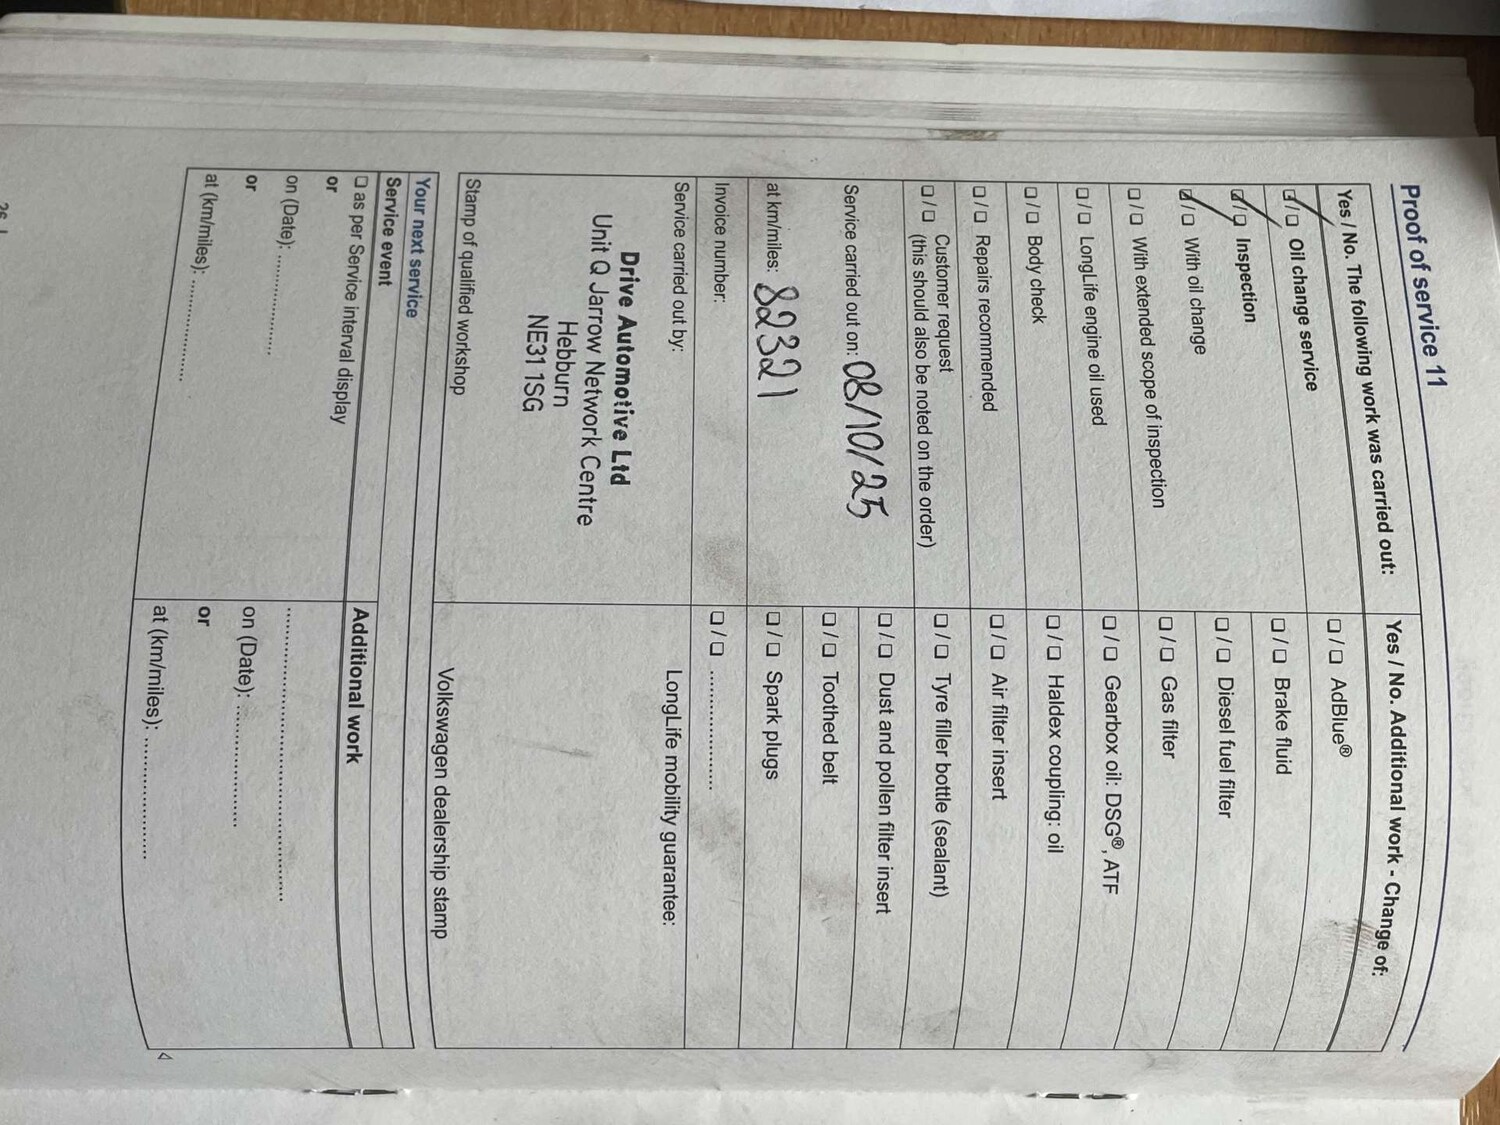 Proof of service 11
Yes / No. The following work was carried out:
☑/☐ Oil change service
☑/☐ Inspection
☑/☐ With oil change
☐/☐ With extended scope of inspection
☐/☐ LongLife engine oil used
☐/☐ Body check
☐/☐ Repairs recommended
☐/☐ Customer request
(this should also be noted on the order)
Service carried out on: 08/10/25
at km/miles: 82321
Invoice number:
Service carried out by:
Drive Automotive Ltd
Unit Q Jarrow Network Centre
Hebburn
NE31 1SG
Stamp of qualified workshop
Yes / No. Additional work - Change of:
☐/☐ AdBlue®
☐/☐ Brake fluid
☐/☐ Diesel fuel filter
☐/☐ Gas filter
☐/☐ Gearbox oil: DSG®, ATF
☐/☐ Haldex coupling: oil
☐/☐ Air filter insert
☐/☐ Tyre filler bottle (sealant)
☐/☐ Dust and pollen filter insert
☐/☐ Toothed belt
☐/☐ Spark plugs
☐/☐ ....................
LongLife mobility guarantee:
Volkswagen dealership stamp
Your next service
Service event
☐ as per Service interval display
or
on (Date): .................
or
at (km/miles): .................
Additional work
..................................................
on (Date): ....................
or
at (km/miles): ....................